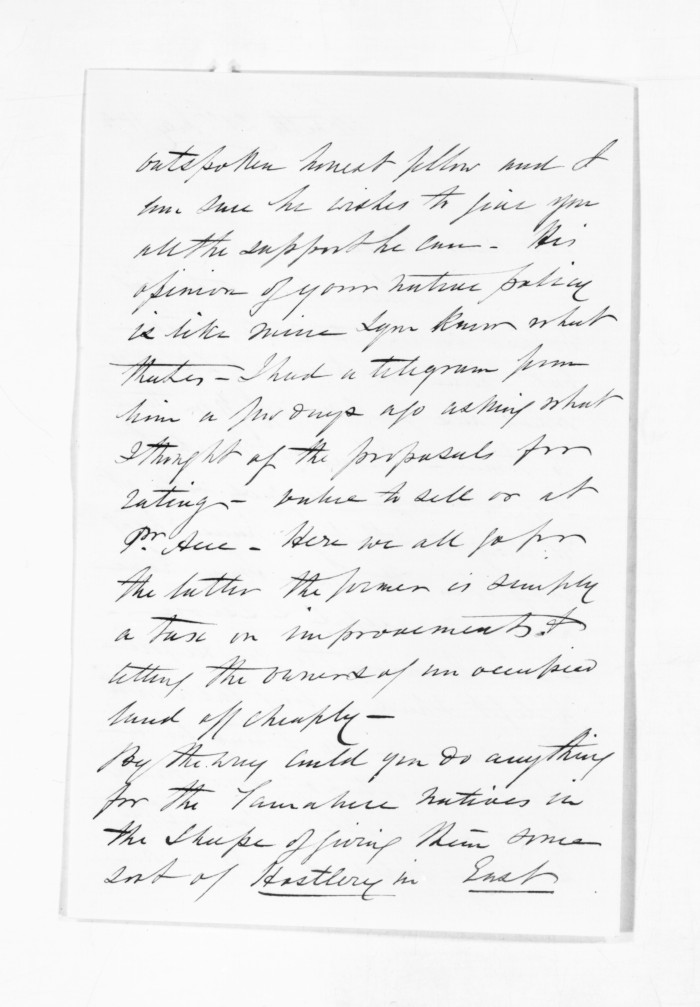 outspoken honest fellow and I
am sure he wishes to give you
all the support he can - His
opinion of your native policy
is like mine & you know what
that is - I had a telegram from
him a few days ago asking what
I thought of the proposals for
rating - value to sell or at
Pr. Acre - Here we all go for
the latter the former is simply
a tax on improvements &
letting the owners of unoccupied
land off cheaply -
By the way could you do anything
for the natives in
the shape of giving them some
sort of Hostlery in East